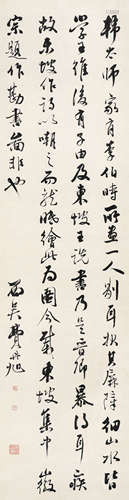 韩太师家有李伯时所画一人剔耳状其屏障细山水皆
学王维后有子由及东坡王说书乃是晋卿暴得耳疾
故东坡作诗以嘲之而龙眠绘此为图今载东坡集中
宗题作勘书图非也 西吴费丹旭